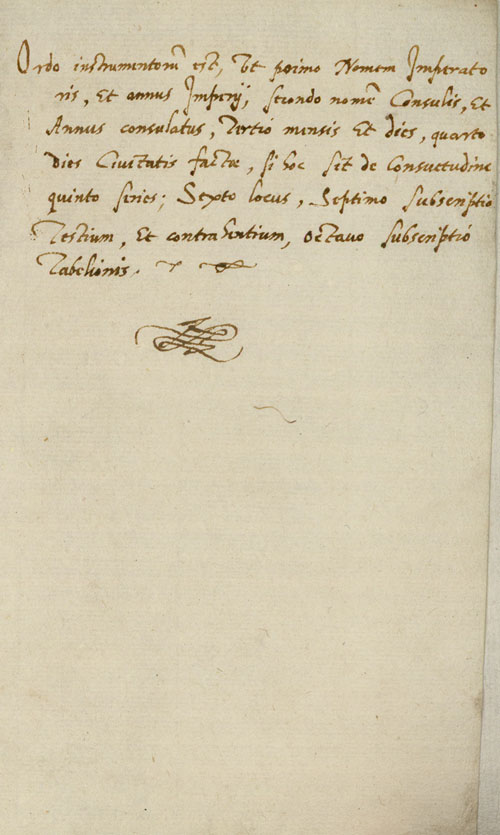 Ordo instrumentorũ est, Vt primo Nomem Imperato
ris, Et annus Imperij, secondo nomẽ Consulis, Et
Annus consulatus, Tertio mensis Et dies, quarto
dies Ciuitatis factæ, si hoc sit de Consuetudine
quinto series; Sexto locus, Septimo subscriptio
Testium, Et contrahentium, octauo subscriptio
Tabelionis.